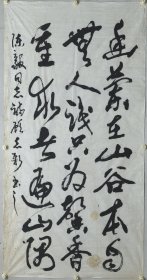 幽蘭在山谷本自
無人识只为馨香
重求者遍山隅
陈毅同志诗